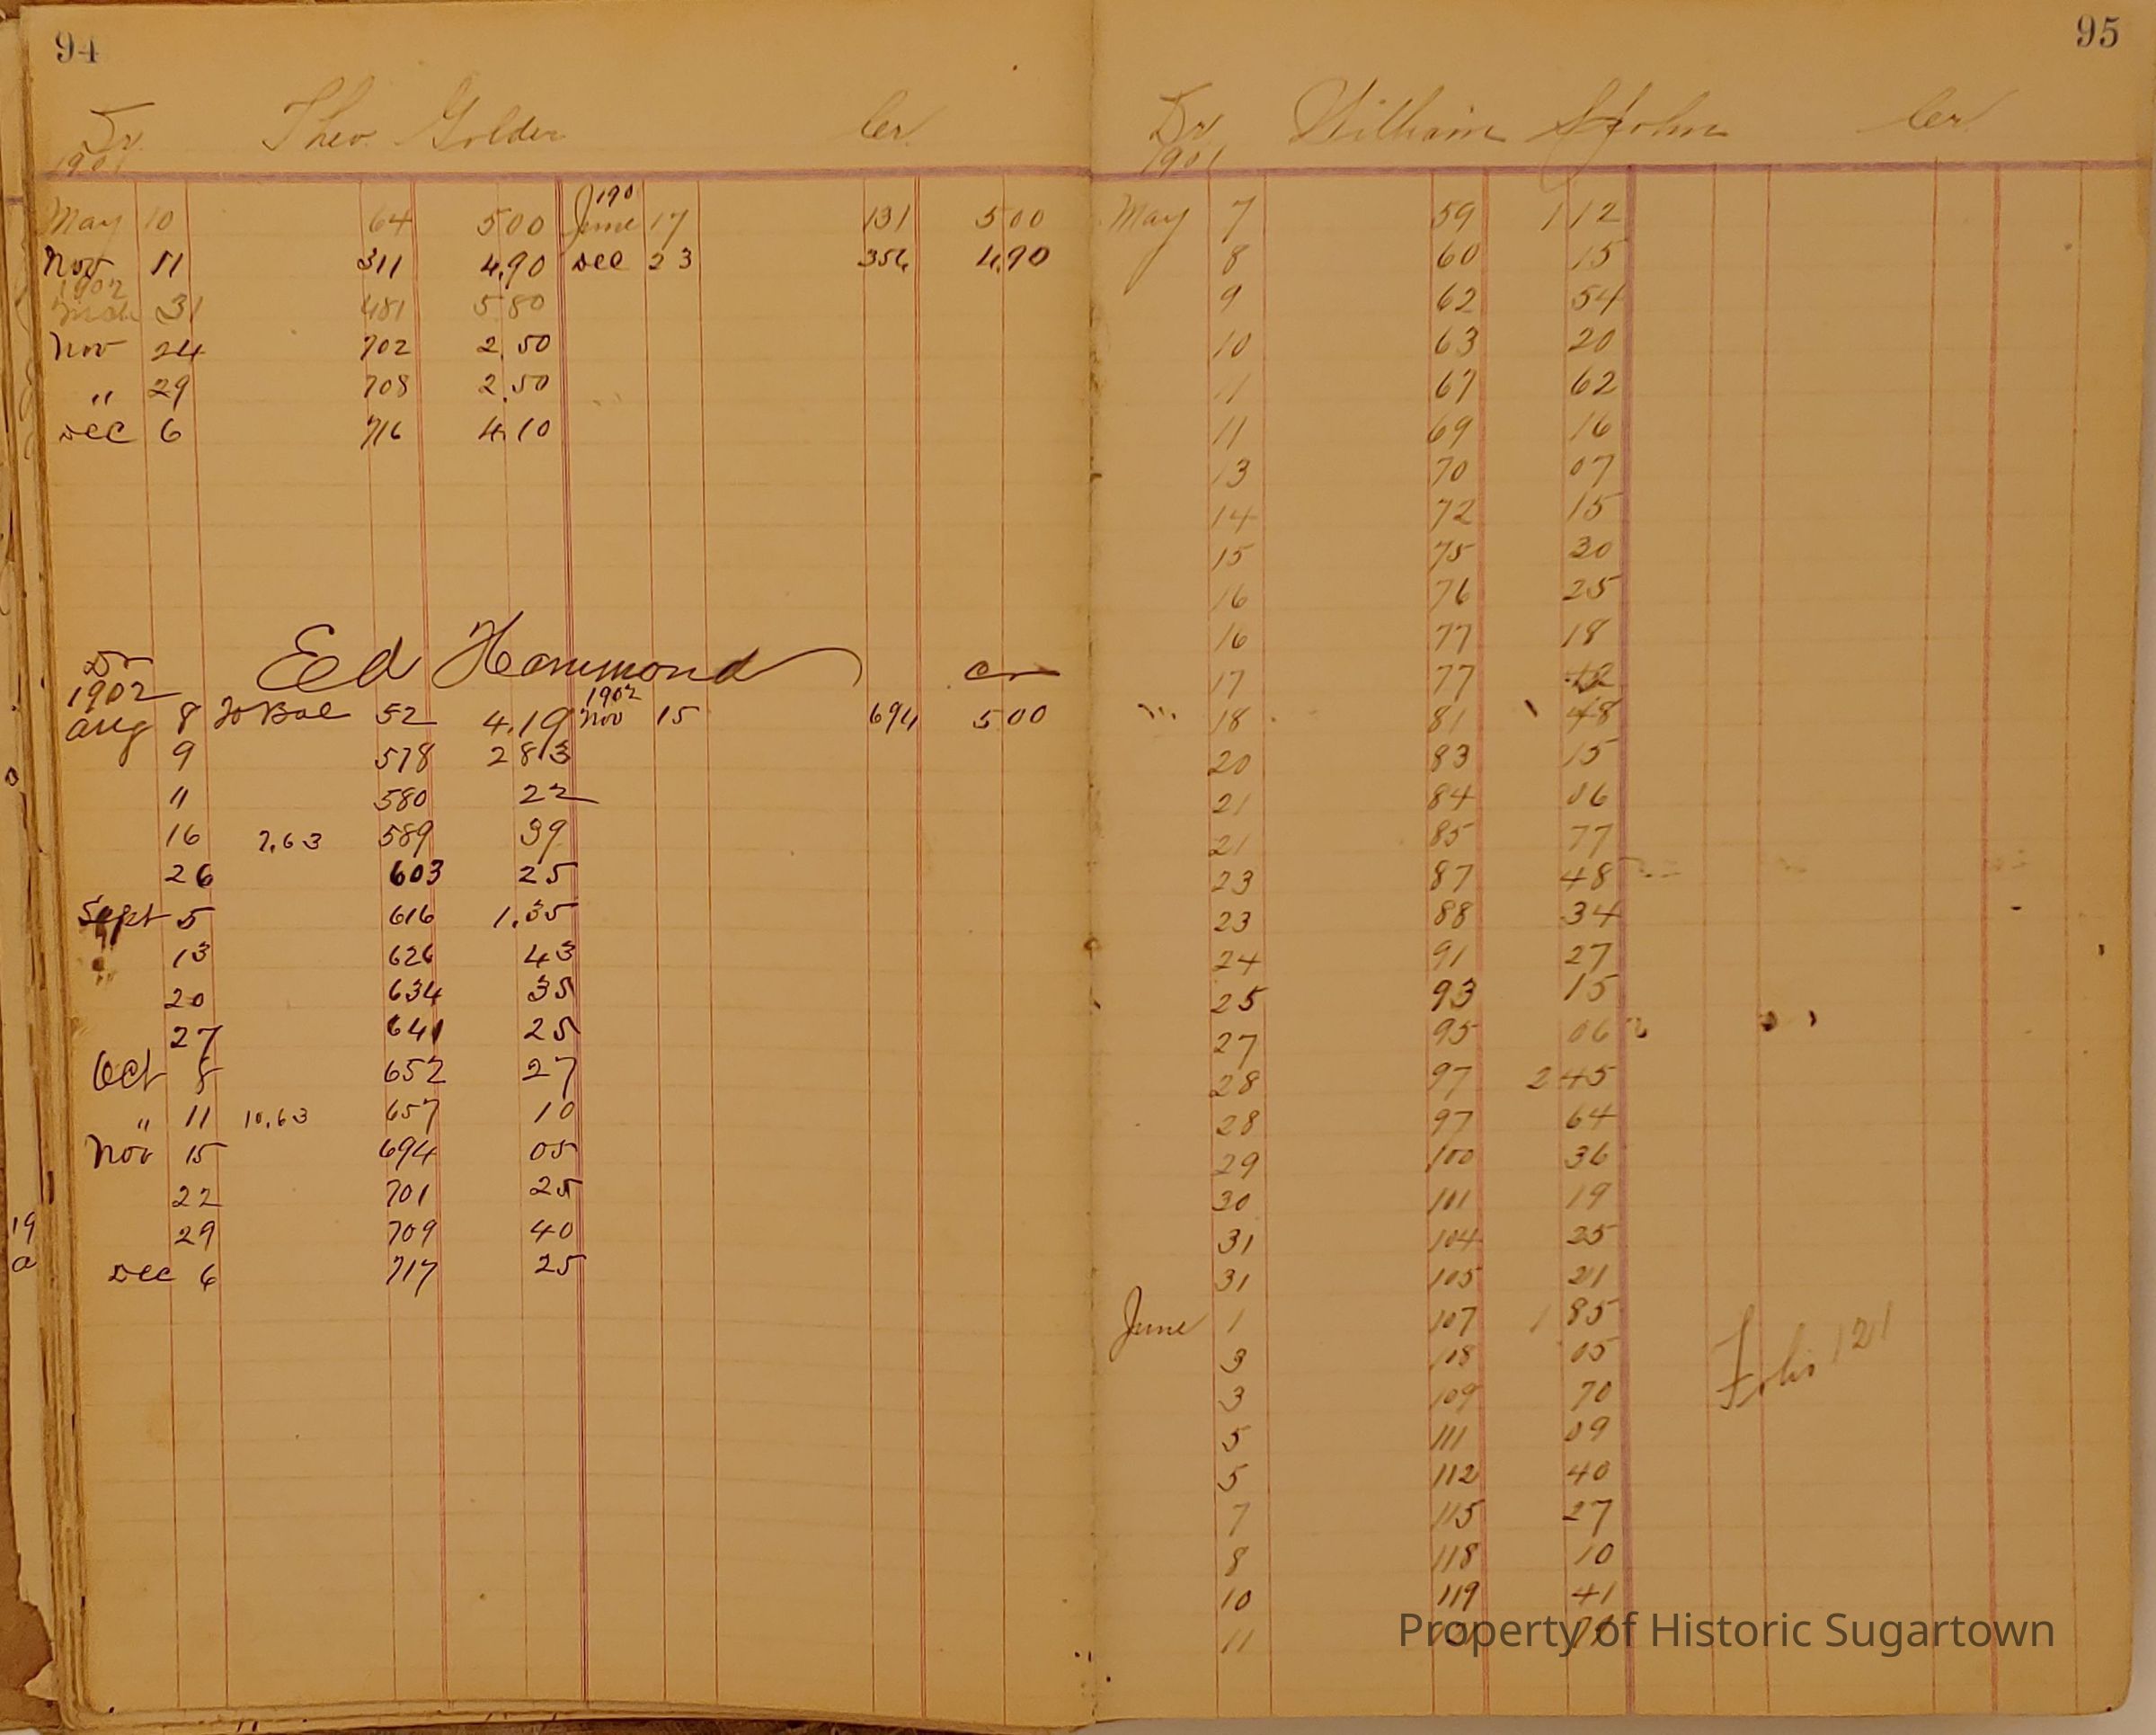 94
Dr. Theo. Golder Cr.
1901
May 10 64 500 June 17 131 500
Nov 11 311 4.90 Dec 23 356 4.90
1902
Mch 31 481 580
Nov 24 702 2.50
" 29 708 2.50
Dec 6 716 4.10
Dr Ed Hammond Cr
1902 1902
Aug 8 To Bal 52 4.19 Nov 15 694 500
9 578 283
" 580 22
16 7.63 589 39
26 603 25
Sept 5 616 1.35
" 13 626 43
" 20 634 35
27 641 25
Oct 5 652 27
" 11 10.63 657 10
Nov 15 694 05
22 701 25
29 709 40
Dec 6 717 25
95
Dr William St John Cr.
1901
May 7 59 112
8 60 15
9 62 54
10 63 20
11 67 62
11 69 16
13 70 07
14 72 15
15 75 30
16 76 25
16 77 18
17 77
18 81 48
20 83 15
21 84 06
21 85 77
23 87 48
23 88 34
24 91 27
25 93 15
27 95 06
28 97 245
28 97 64
29 100 36
30 101 19
31 104 25
31 105 21
June 1 107 1 85
3 108 05
3 109 70
5 111 09
5 112 40
7 115 27
8 118 10
10 119 41
11
Folio 121
Property of Historic Sugartown